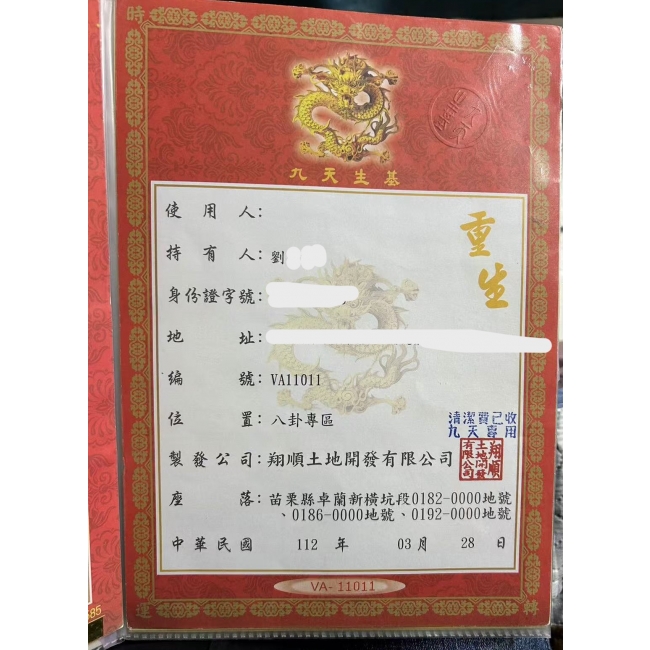 時
來
九天生基
使用人:
重生
持有人:劉
身份證字號:
地址:
編號:VA11011
位置:八卦專區
清潔費已收
九天專用
製發公司:翔順土地開發有限公司
翔順
土地開發
有限公司
座落:苗栗縣卓蘭新橫坑段0182-0000地號
、0186-0000地號、0192-0000地號
中華民國 112 年 03 月 28 日
VA- 11011
運
轉
585